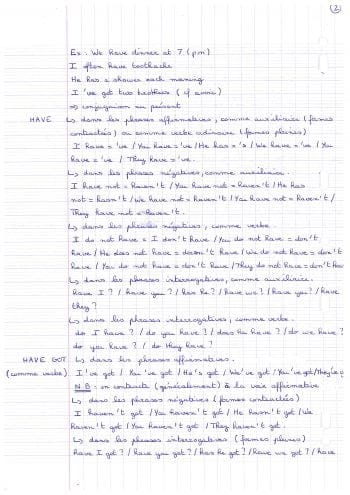 ②
Ex: We have dinner at 7 (pm)
I often have toothache
He has a shower each morning
I've got two brothers (
⇒ conjugaison au présent
HAVE ↳ dans les phrases affirmatives, comme auxiliaire (formes
contractées) ou comme verbe ordinaire (formes pleines)
I have = 've / You have = 've / He has = 's / We have = 've / You
have = 've / They have = 've.
↳ dans les phrases négatives, comme auxiliaire.
I have not = haven't / You have not = haven't / He has
not = hasn't / We have not = haven't / You have not = haven't /
They have not = haven't.
↳ dans les phrases négatives, comme verbe.
I do not have = I don't have / You do not have = don't
have / He does not have = doesn't have / We do not have = don't
have / You do not have = don't have / They do not have = don't have
↳ dans les phrases interrogatives, comme auxiliaire.
have I? / have you? / has he? / have we? / have you? / have
they?
↳ dans les phrases interrogatives, comme verbe.
do I have? / do you have? / does he have? / do we have?
do you have? / do they have?
HAVE GOT ↳ dans les phrases affirmatives.
(comme verbe) I've got / You've got / He's got / We've got / You've got / They've g
N.B: on contracte (généralement) à la voix affirmative
↳ dans les phrases négatives (formes contractées)
I haven't got / You haven't got / He hasn't got / We
haven't got / You haven't got / They haven't got.
↳ dans les phrases interrogatives (formes pleines)
have I got? / have you got? / has he got? / have we got? / have